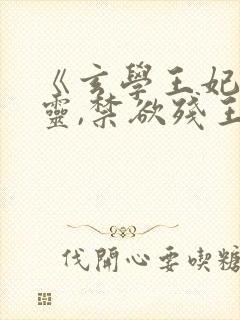 《玄學王妃
靈,禁欲殘王
伐開心要喫糖